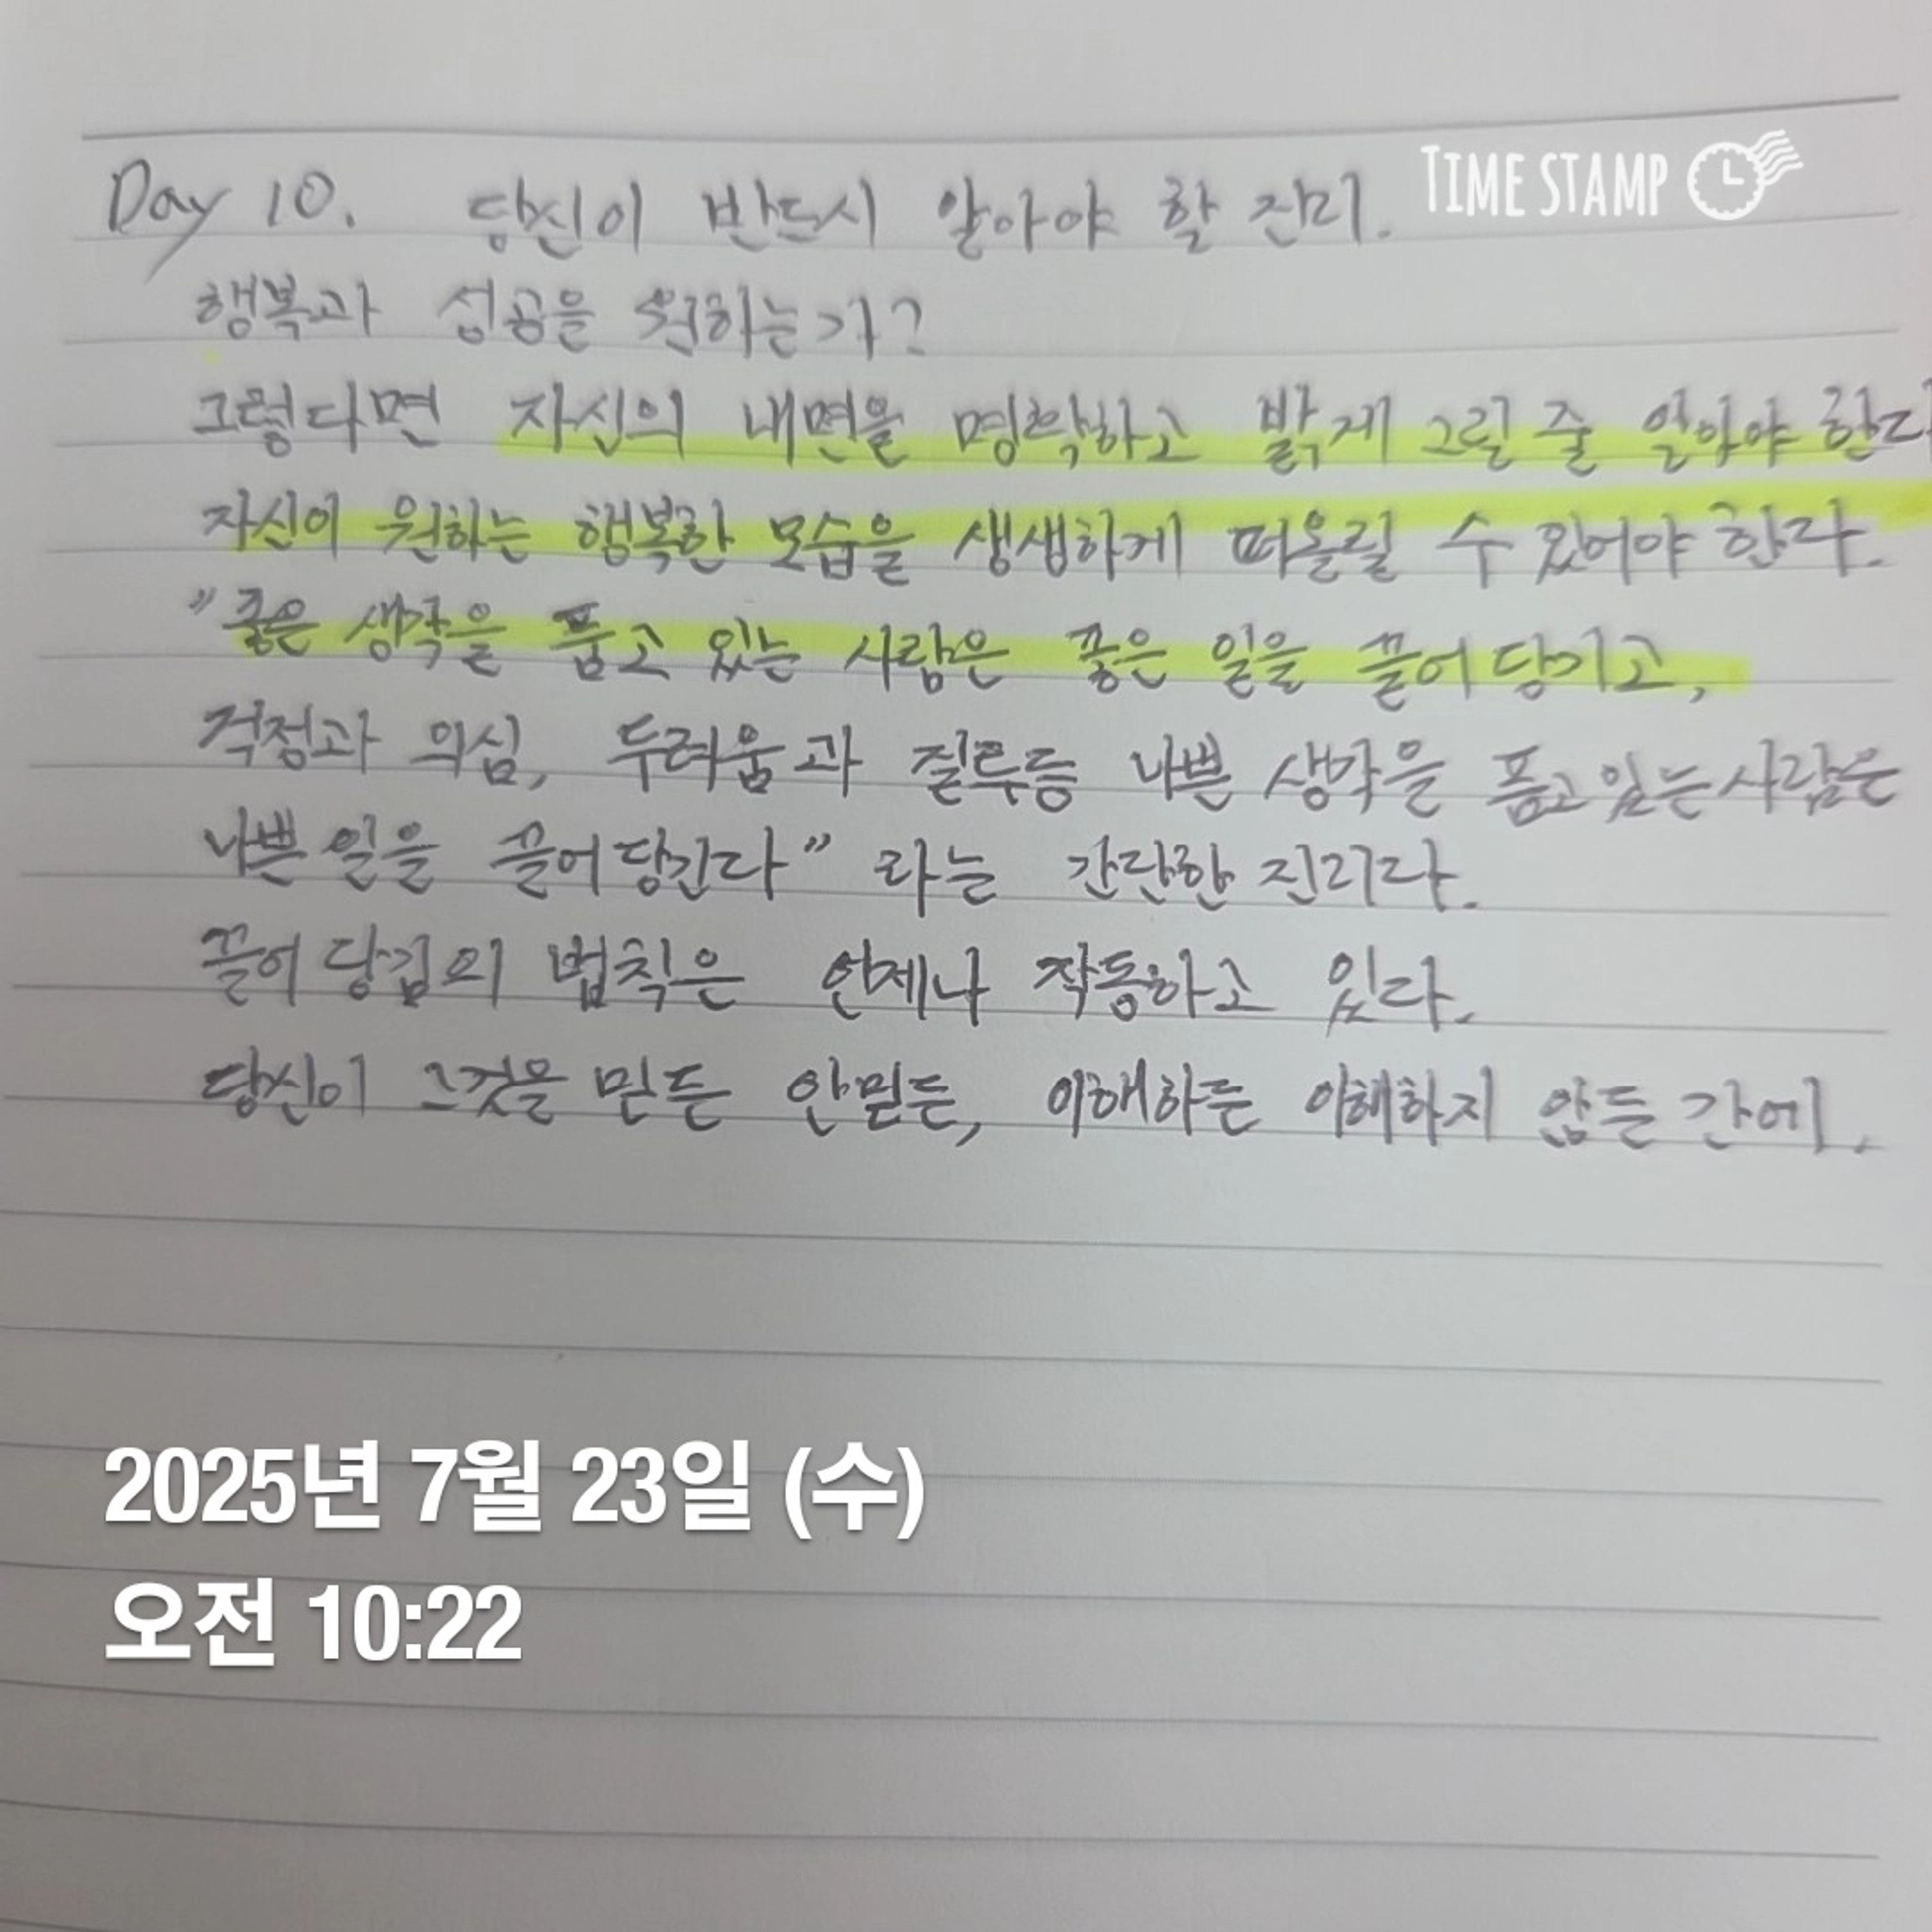 Day 10. 당신이 반드시 알아야 할 진리.
TIME STAMP
행복과 성공을 원하는가?
그렇다면 자신의 내면을 명확하고 밝게 그릴 줄 알아야 한다
자신이 원하는 행복한 모습을 생생하게 떠올릴 수 있어야 한다.
"좋은 생각을 품고 있는 사람은 좋은 일을 끌어당기고,
걱정과 의심, 두려움과 질투등 나쁜 생각을 품고있는사람은
나쁜 일을 끌어당긴다" 라는 간단한 진리다.
끌어당김의 법칙은 언제나 작동하고 있다.
당신이 그것을 믿든 안믿든, 이해하든 이해하지 않든 간에.
2025년 7월 23일 (수)
오전 10:22